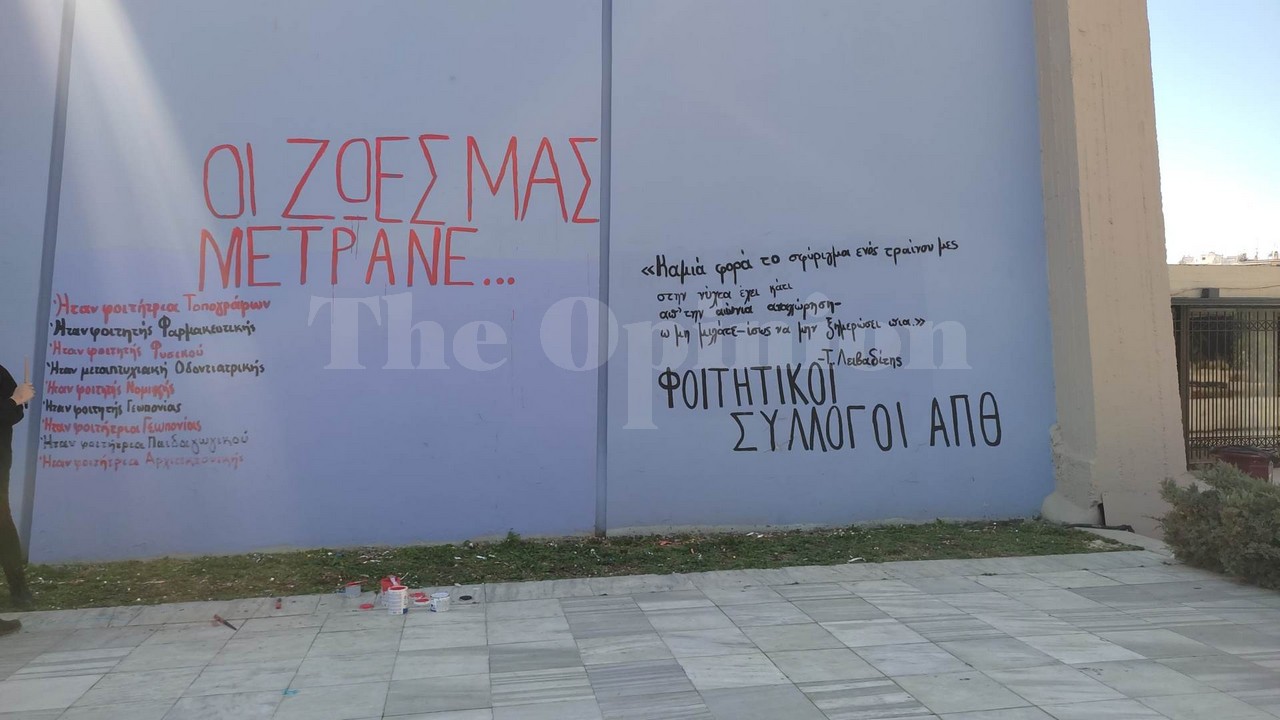 ΟΙ ΖΩΕΣ ΜΑΣ
ΜΕΤΡΑΝΕ...
Ήταν φοιτήτρια Τοπογράφων
Ήταν φοιτητής Φαρμακευτικής
Ήταν φοιτητής Φυσικού
Ήταν μεταπτυχιακή Οδοντιατρικής
Ήταν φοιτητής Νομικής
Ήταν φοιτητής Γεωπονίας
Ήταν φοιτήτρια Γεωπονίας
Ήταν φοιτήτρια Παιδαγωγικού
Ήταν φοιτήτρια Αρχιτεκτονικής
«Καμιά φορά το σφύριγμα ενός τραίνου μες
στην νύχτα έχει κάτι
απ' την αιώνια αποχώρηση-
ω μη μιλάτε-ίσως να μην ξημερώσει πια.»
-Τ. Λειβαδίτης
ΦΟΙΤΗΤΙΚΟΙ
ΣΥΛΛΟΓΟΙ ΑΠΘ
The Opinion